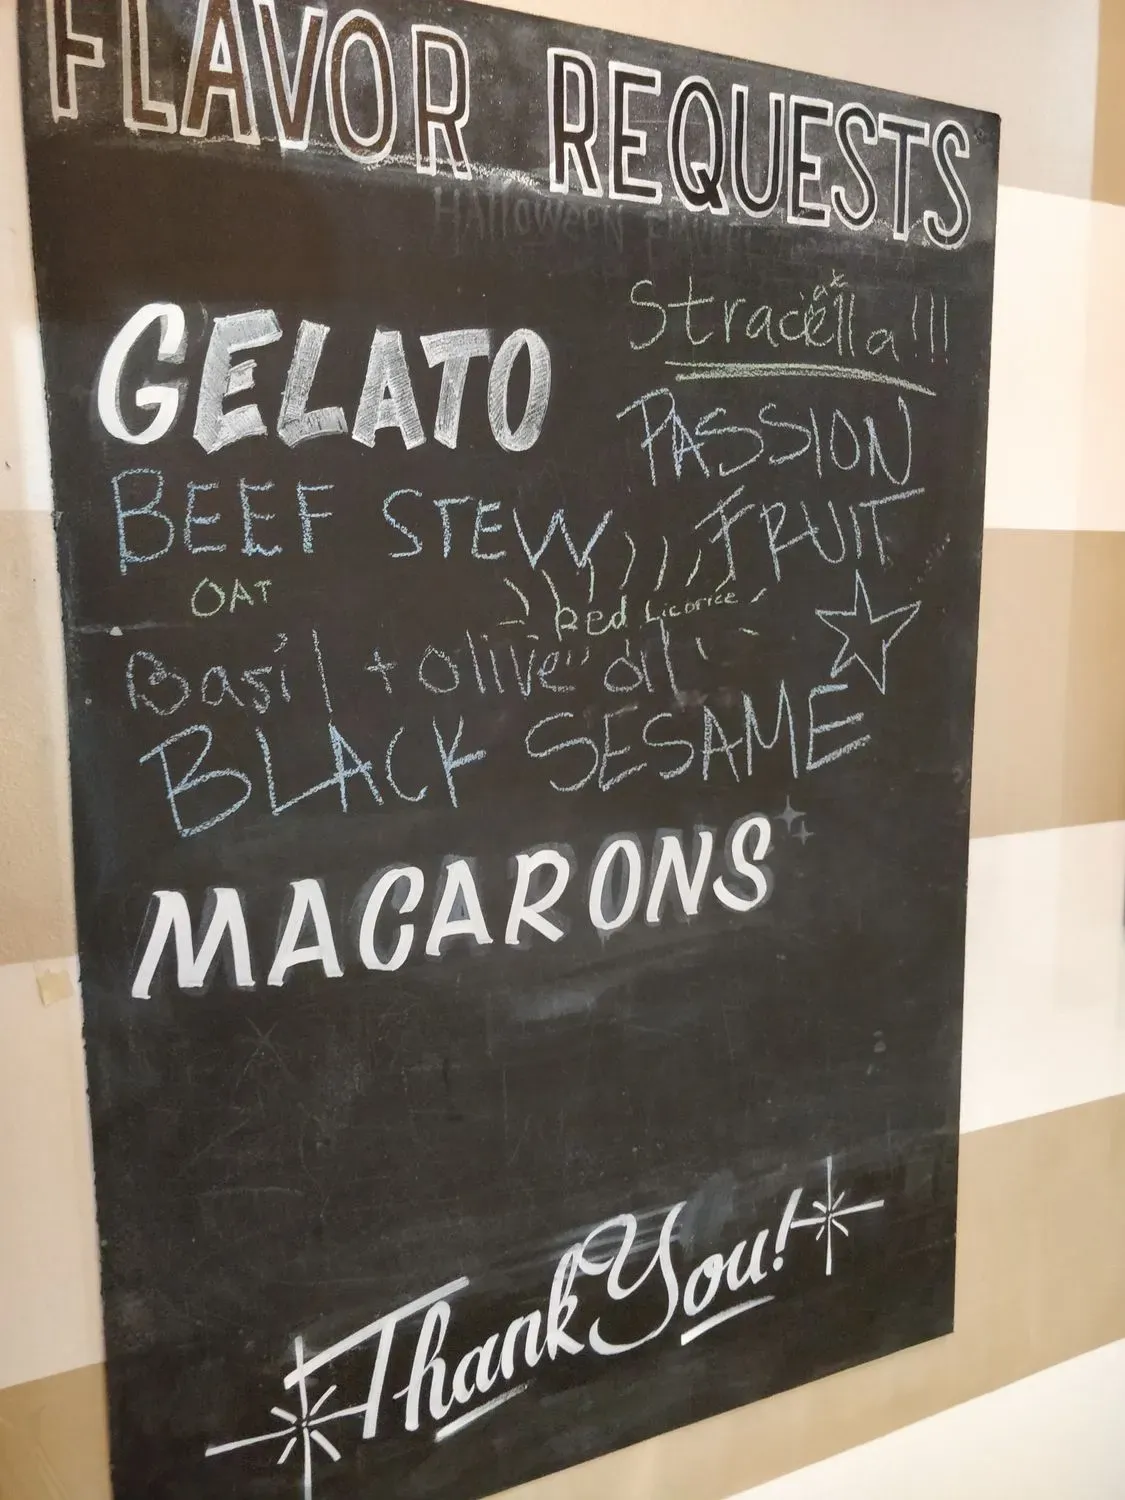 FLAVOR REQUESTS
HALLOWEEN
GELATO
Stracella!!!
at
PASSION
FRUIT
BEEF STEW
OAT
Red Licorice
Basil + olive oil
BLACK SESAME
MACARONS
Thank You!